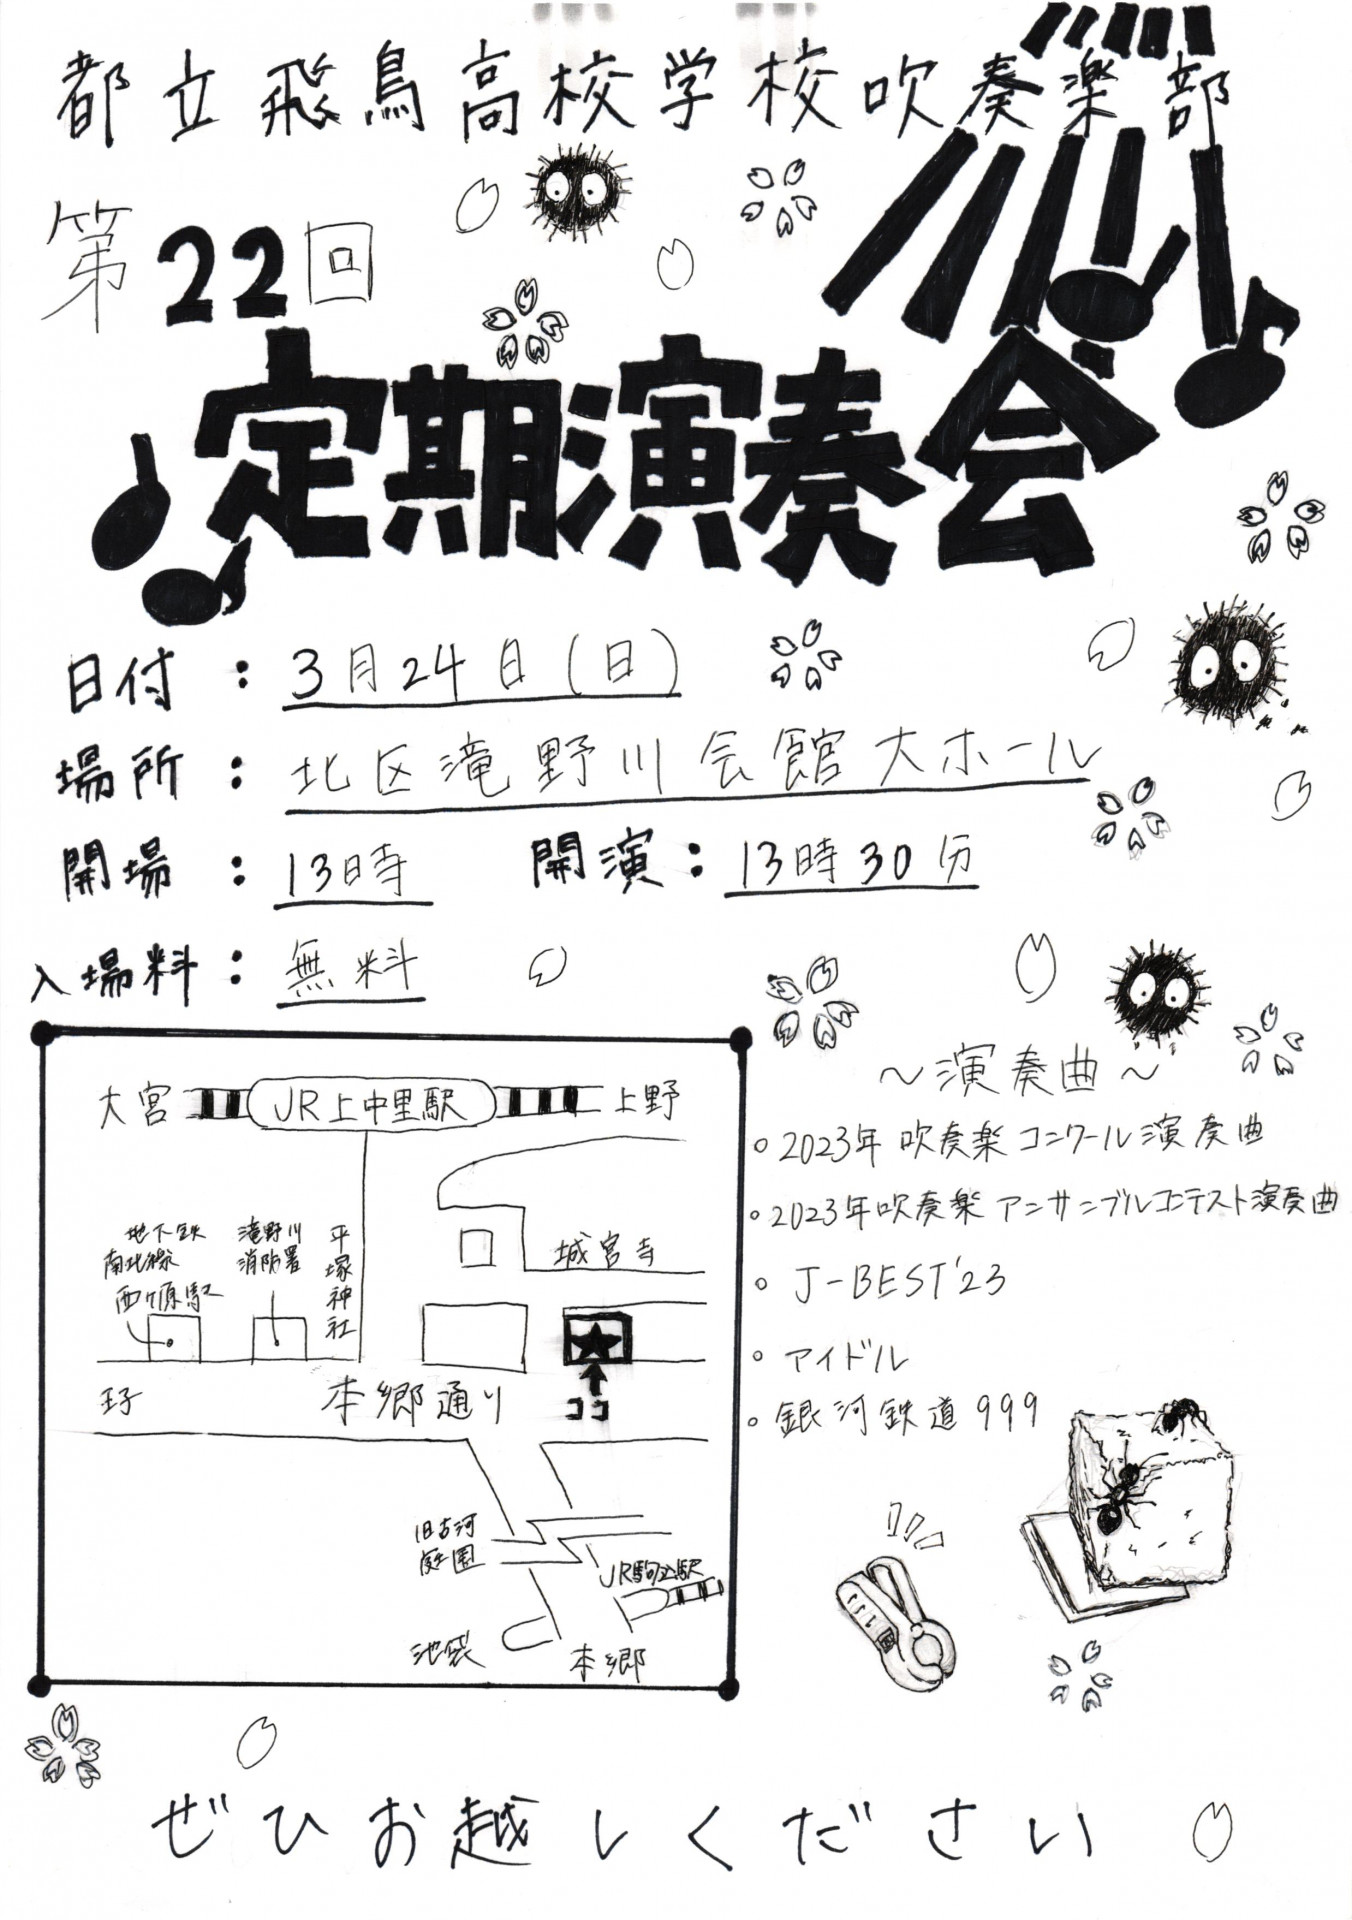 都立飛鳥高校学校吹奏楽部
第22回
定期演奏会
日付：3月24日(日)
場所：北区滝野川会館大ホール
開場：13時 開演：13時30分
入場料：無料
大宮 JR上中里駅 上野
地下鉄
南北線
西ヶ原駅
滝野川
消防署
平塚神社
城官寺
王子 本郷通り
ココ
旧古河
庭園
JR駒込駅
池袋 本郷
～演奏曲～
。2023年吹奏楽コンクール演奏曲
。2023年吹奏楽アンサンブルコンテスト演奏曲
。J-BEST'23
。アイドル
。銀河鉄道999
ぜひお越しください